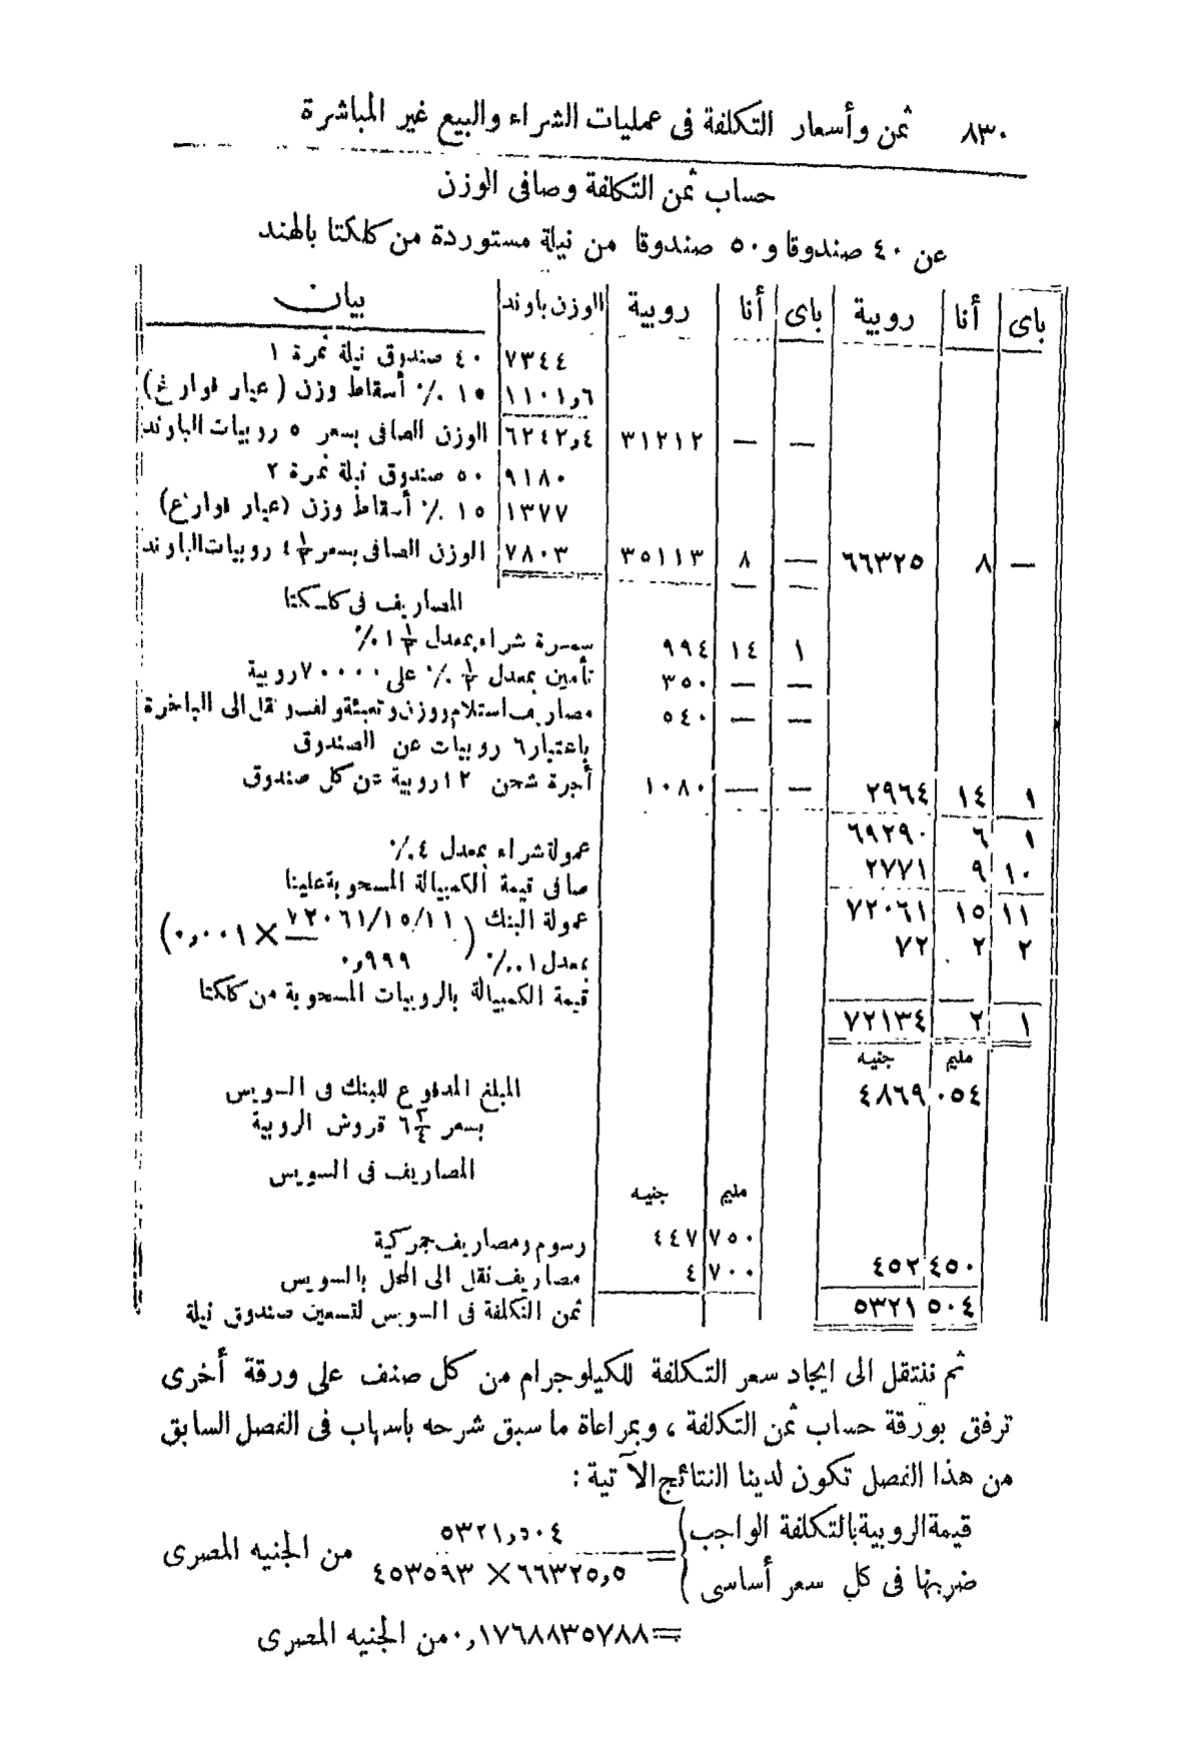 ٨٣٠ ثمن وأسعار التكلفة فى عمليات الشراء والبيع غير المباشرة
حساب ثمن التكلفة وصافى الوزن
عن ٤٠ صندوقا و٥٠ صندوقا من نيلة مستوردة من كلكتا بالهند
باى أنا روبية باى أنا روبية الوزن باوند بيان
٧٣٤٤ ٤٠ صندوق نيلة نمرة ١
١١٠١٫٦ ١٥ ٪ أسقاط وزن ( عيار فوارغ)
— — ٣١٢١٢ ٦٢٤٢٫٤ الوزن الصافى بسعر ٥ روبيات الباوند
٩١٨٠ ٥٠ صندوق نيلة نمرة ٢
١٣٧٧ ١٥ ٪ أسقاط وزن (عيار فوارغ)
— ٨ ٦٦٣٢٥ — ٨ ٣٥١١٣ ٧٨٠٣ الوزن الصافى بسعر ٤½ روبيات الباوند
المصاريف فى كلكتا
١ ١٤ ٩٩٤ سمسرة شراء بمعدل ١½ ٪
— — ٣٥٠ تأمين بمعدل ½ ٪ على ٧٠٠٠٠ روبية
— — ٥٤٠ مصاريف استلام ووزن وتعبئة ولف ونقل الى الباخرة
باعتبار ٦ روبيات عن الصندوق
١ ١٤ ٢٩٦٤ — — ١٠٨٠ أجرة شحن ١٢ روبية عن كل صندوق
١ ٦ ٦٩٢٩٠
١٠ ٩ ٢٧٧١ عمولة شراء بمعدل ٤ ٪
١١ ١٥ ٧٢٠٦١ صافى قيمة الكمبيالة المسحوبة علينا
٢ ٢ ٧٢ عمولة البنك (٧٢٠٦١/١٥/١١ × ٠٫٠٠١)
بمعدل ١ ٪٠ ٠٫٩٩٩
١ ٢ ٧٢١٣٤ قيمة الكمبيالة بالروبيات المسحوبة من كلكتا
مليم جنيه
٠٥٤ ٤٨٦٩ المبلغ المدفوع للبنك فى السويس
بسعر ٦¾ قروش الروبية
المصاريف فى السويس
مليم جنيه
٧٥٠ ٤٤٧ رسوم ومصاريف جمركية
٤٥٠ ٤٥٢ ٧٠٠ ٤ مصاريف نقل الى المحل بالسويس
٥٠٤ ٥٣٢١ ثمن التكلفة فى السويس لتسعين صندوق نيلة
ثم ننتقل الى ايجاد سعر التكلفة للكيلوجرام من كل صنف على ورقة أخرى
ترفق بورقة حساب ثمن التكلفة ، وبمراعاة ما سبق شرحه باسهاب فى الفصل السابق
من هذا الفصل تكون لدينا النتائج الآتية :
قيمة الروبية بالتكلفة الواجب ضربها فى كل سعر أساسى } = ٥٣٢١٫٥٠٤ / ٦٦٣٢٥٫٥ × ٤٥٣٥٩٣ من الجنيه المصرى
= ٠٫١٧٦٨٨٣٥٧٨٨ من الجنيه المصرى